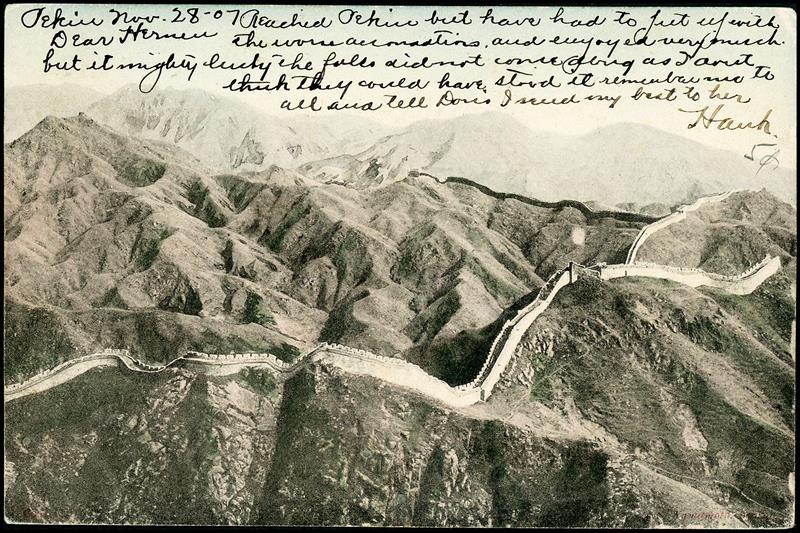 Pekin Nov. 28-07 Reached Pekin but have had to put up with
Dear Hermen the worse accomadtions, and enjoyed very much.
but it mighty lucky the folks did not come along as I dont
think they could have stood it remembar me to
all and tell Doris I send my best to her
Hank
5¢